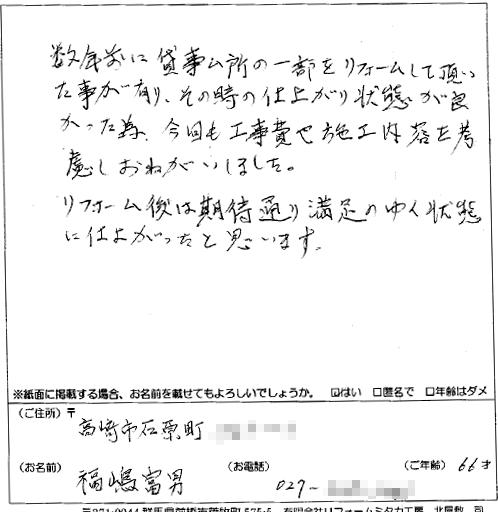 数年前に貸事ム所の一部をリフォームして頂い
た事が有り、その時の仕上がり状態が良
かった為、今回も工事費や施工内容を考
慮しおねがいしました。
リフォーム後は期待通り満足のゆく状態
に仕上がったと思います。
※紙面に掲載する場合、お名前を載せてもよろしいでしょうか。 ☑はい □匿名で □年齢はダメ
(ご住所) 〒
高崎市石原町
(お名前) 福嶋富男 (お電話) 027- (ご年齢) 66才
〒371-0044 群馬県前橋市荒牧町575-5 有限会社リフォームミタカ工房